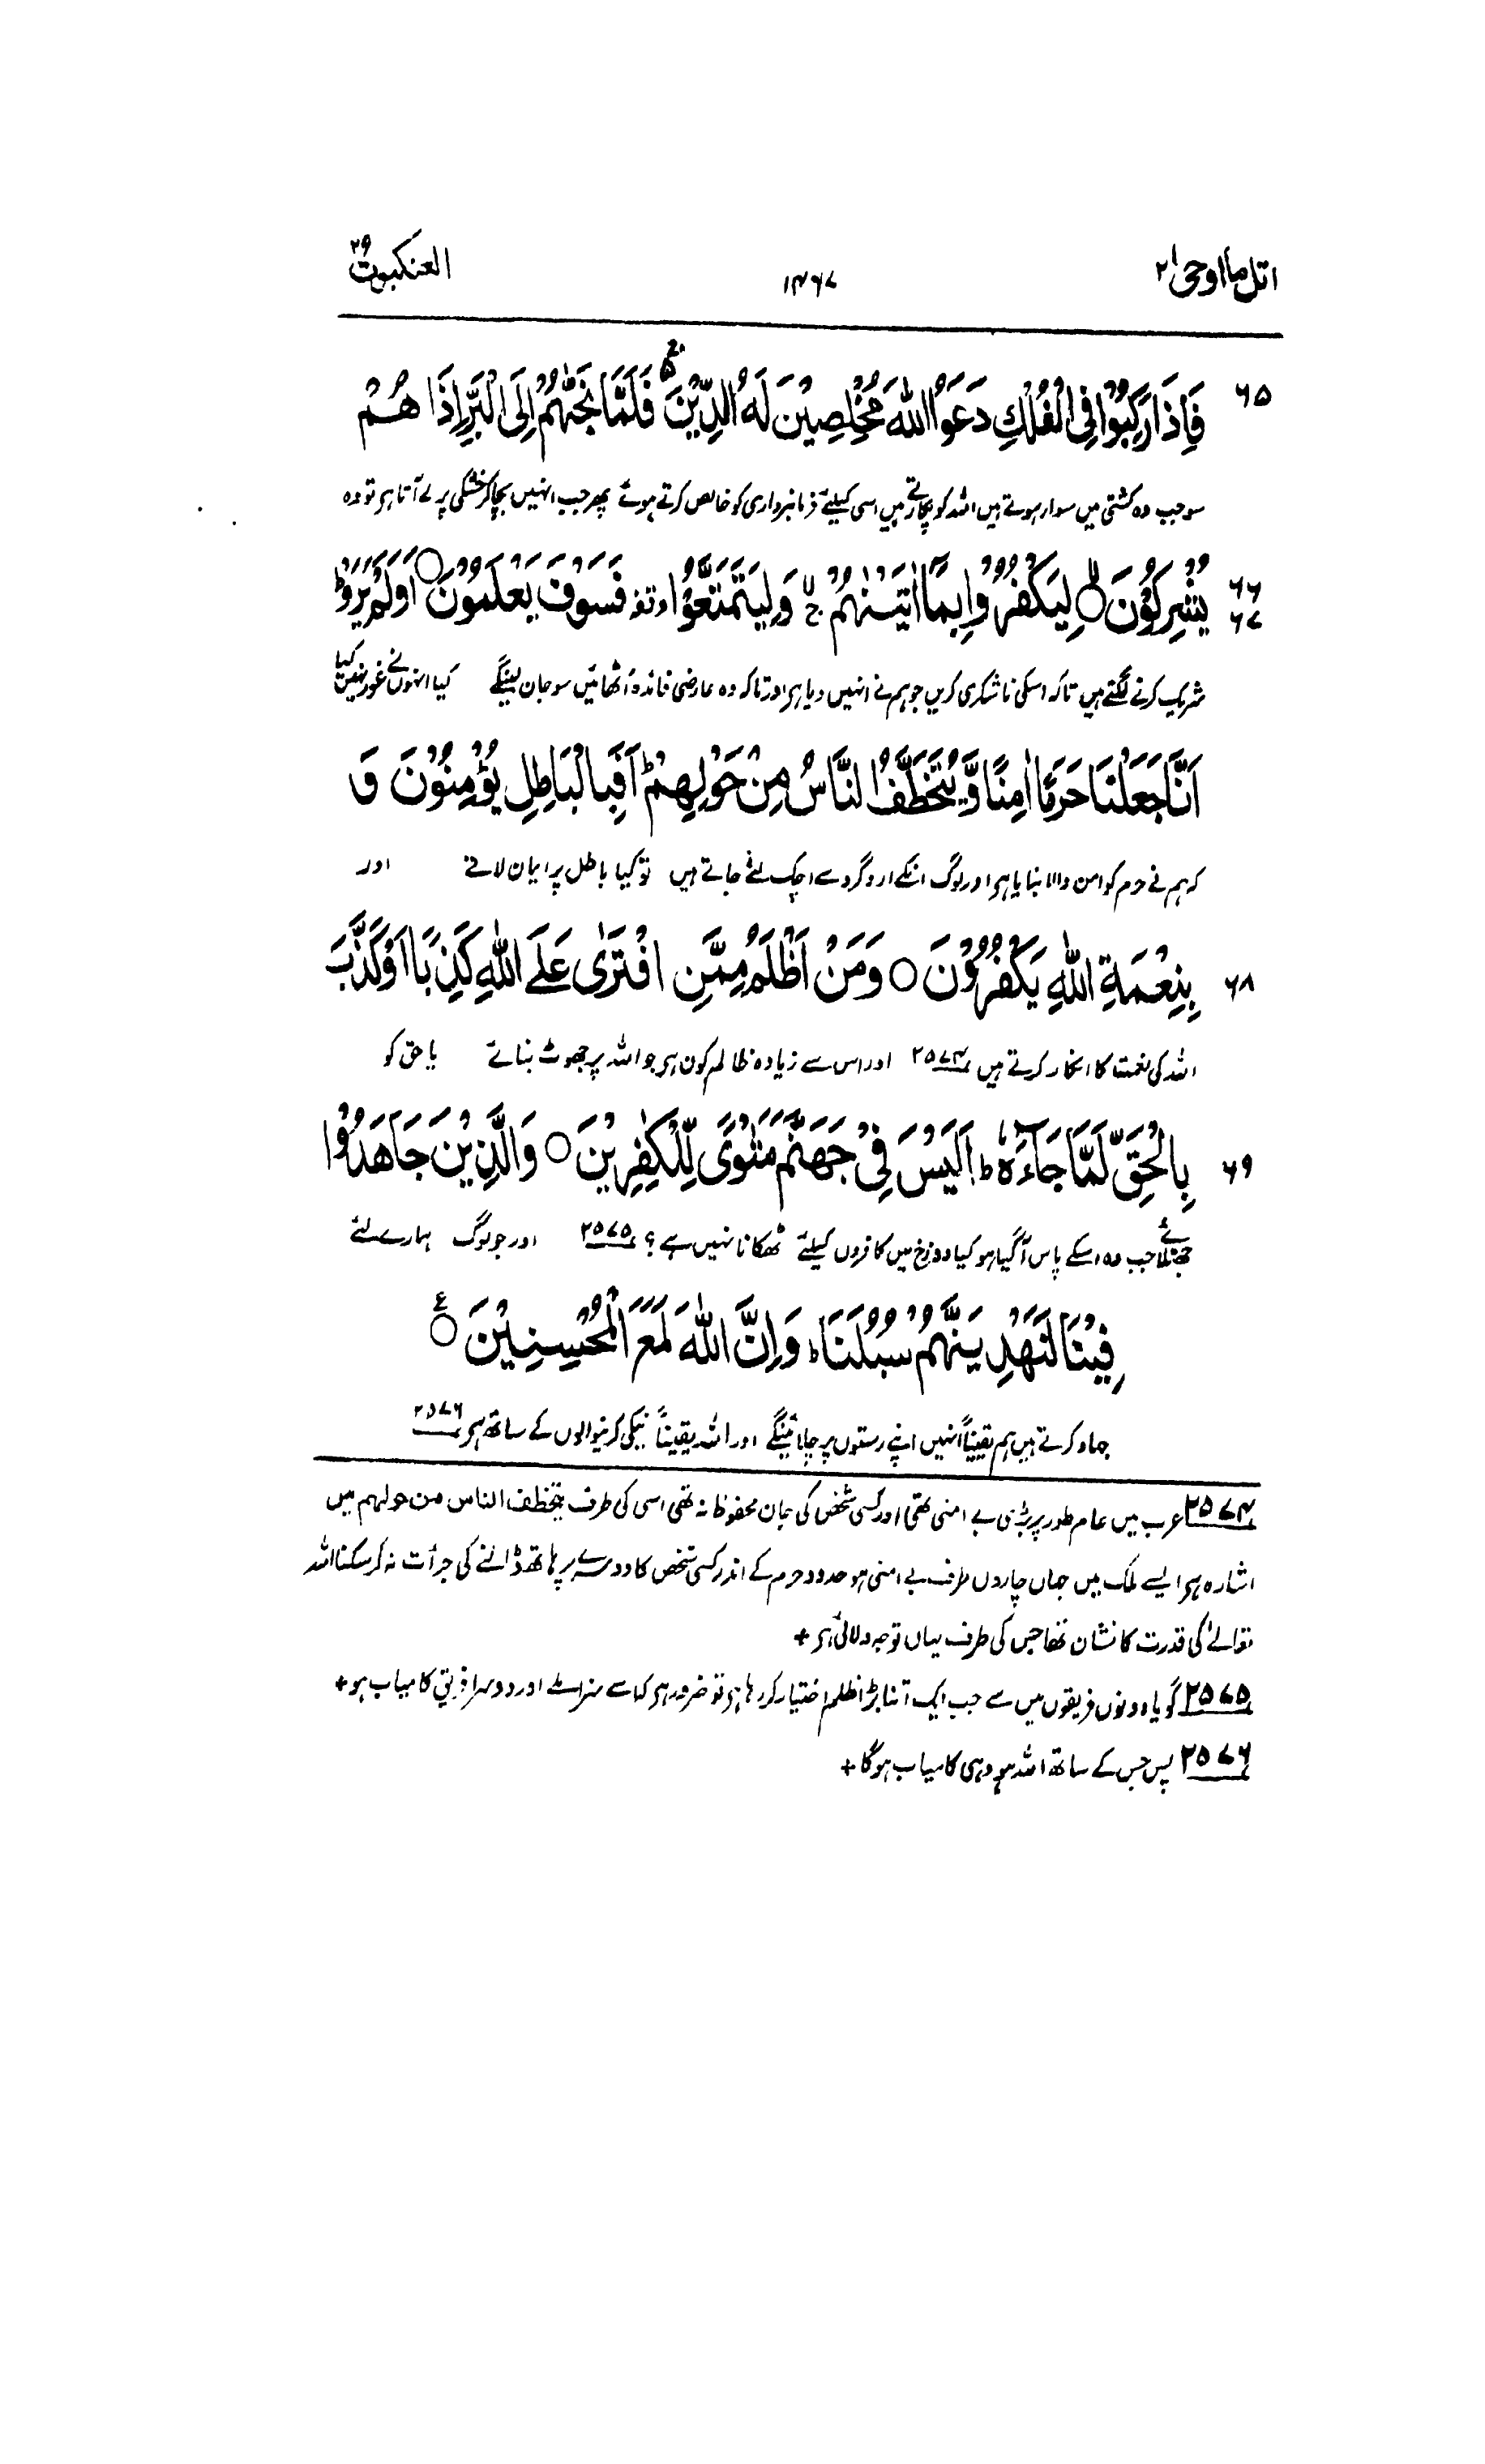 اتل ما اوحی ۲۱ ۱۴۶۷ العنکبوت ۲۹
۶۵ فَاِذَا رَكِبُوْا فِى الْفُلْكِ دَعَوُا اللّٰهَ مُخْلِصِيْنَ لَهُ الدِّيْنَ ۚ۬ فَلَمَّا نَجّٰىهُمْ اِلَى الْبَرِّ اِذَا هُمْ
سو جب وہ کشتی میں سوار ہوتے ہیں اللہ کو پکارتے ہیں اسی کیلئے فرمانبرداری کو خالص کرتے ہوئے پھر جب انہیں بچا کر خشکی پر لے آتا ہر تو وہ
۶۶ ۶۷ يُشْرِكُوْنَ ۙ لِيَكْفُرُوْا بِمَاۤ اٰتَيْنٰهُمْ ۙۚ وَلِيَتَمَتَّعُوْا وقفہ فَسَوْفَ يَعْلَمُوْنَ ○ اَوَلَمْ يَرَوْا
شریک کرنے لگتے ہیں تاکہ اسکی ناشکری کریں جو ہم نے انہیں دیا ہر اور تاکہ وہ عارضی فائدہ اُٹھائیں سو جان لینگے کیا انہوں نے غور نہیں کیا
اَنَّا جَعَلْنَا حَرَمًا اٰمِنًا وَّيُتَخَطَّفُ النَّاسُ مِنْ حَوْلِهِمْ ؕ اَفَبِالْبَاطِلِ يُؤْمِنُوْنَ وَ
کہ ہم نے حرم کو امن والا بنایا ہر اور لوگ انکے اردگرد سے اچک لئے جاتے ہیں تو کیا باطل پر ایمان لاتے اور
۶۸ بِنِعْمَةِ اللّٰهِ يَكْفُرُوْنَ ○ وَمَنْ اَظْلَمُ مِمَّنِ افْتَرٰى عَلَى اللّٰهِ كَذِبًا اَوْ كَذَّبَ
اللہ کی نعمت کا انکار کرتے ہیں ۲۵۷۴ اور اس سے زیادہ ظالم کون ہر جو اللہ پر جھوٹ بنائے یا حق کو
۶۹ بِالْحَقِّ لَمَّا جَآءَهٗ ؕ اَلَيْسَ فِىْ جَهَنَّمَ مَثْوًى لِّلْكٰفِرِيْنَ ○ وَالَّذِيْنَ جَاهَدُوْا
جھٹلائے جب وہ اسکے پاس آگیا ہو کیا دوزخ میں کافروں کیلئے ٹھکانا نہیں ہے؟ ۲۵۷۵ اور جو لوگ ہمارے لئے
فِيْنَا لَنَهْدِيَنَّهُمْ سُبُلَنَا ؕ وَاِنَّ اللّٰهَ لَمَعَ الْمُحْسِنِيْنَ ○ ع
جہاد کرتے ہیں ہم یقیناً انہیں اپنے رستوں پر چلائینگے اور اللہ یقیناً نیکی کرنیوالوں کے ساتھ ہر ۲۵۷۶
۲۵۷۴ عرب میں عام طور پر بڑی بے امنی تھی اور کسی شخص کی جان محفوظ نہ تھی اسی کی طرف یتخطف الناس من حولہم میں
اشارہ ہر ایسے ملک میں جہاں چاروں طرف بے امنی ہو حدود حرم کے اندر کسی شخص کا دوسرے پر ہاتھ ڈالنے کی جرأت نہ کر سکنا اللہ
تعالےٰ کی قدرت کا نشان تھا جس کی طرف یہاں توجہ دلائی ہر +
۲۵۷۵ گویا دونوں فریقوں میں سے جب ایک اتنا بڑا ظلم اختیار کر رہا ہر تو ضرور ہر کہ اسے سزا ملے اور دوسرا فریق کامیاب ہو +
۲۵۷۶ پس جس کے ساتھ اللہ ہو وہی کامیاب ہوگا +